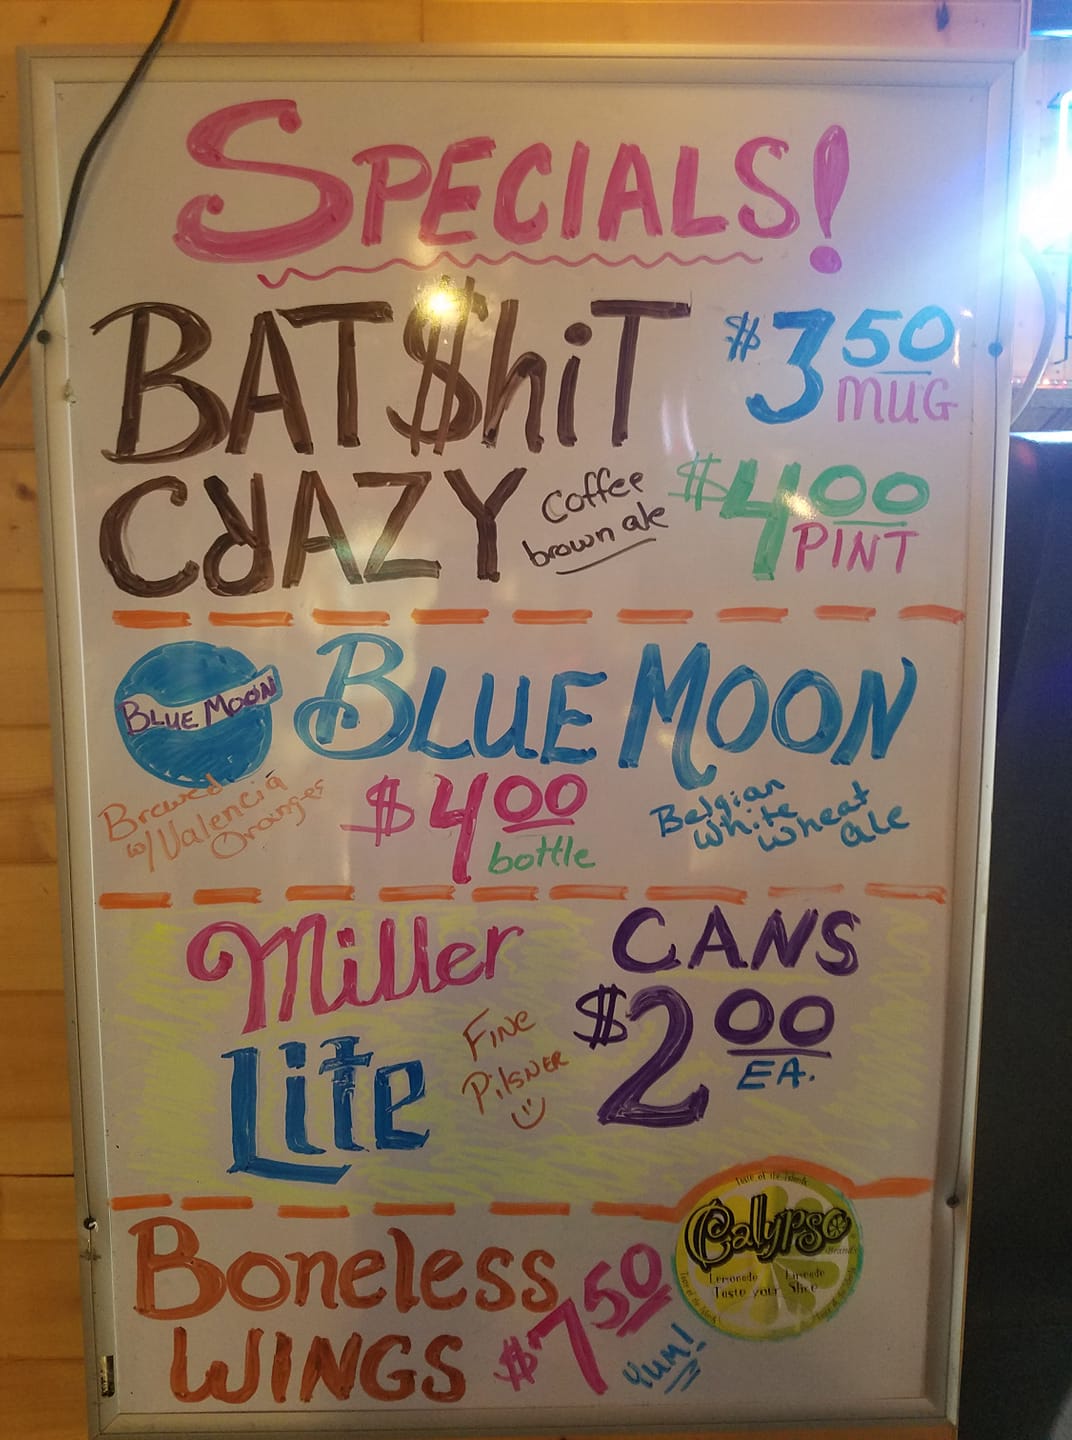 SPECIALS!
BAT$hiT $3.50 MUG
CRAZY Coffee brown ale $4.00 PINT
BLUE MOON
BLUE MOON
Brewed
w/Valencia
Oranges
$4.00
bottle
Belgian
White Wheat
ale
Miller
Lite
FINE
PilSNER
CANS
$2.00
EA.
Boneless
WINGS $7.50
YUM!
Taste of the Islands
Calypso
Brands
Lemonade Limeade
Taste your Slice